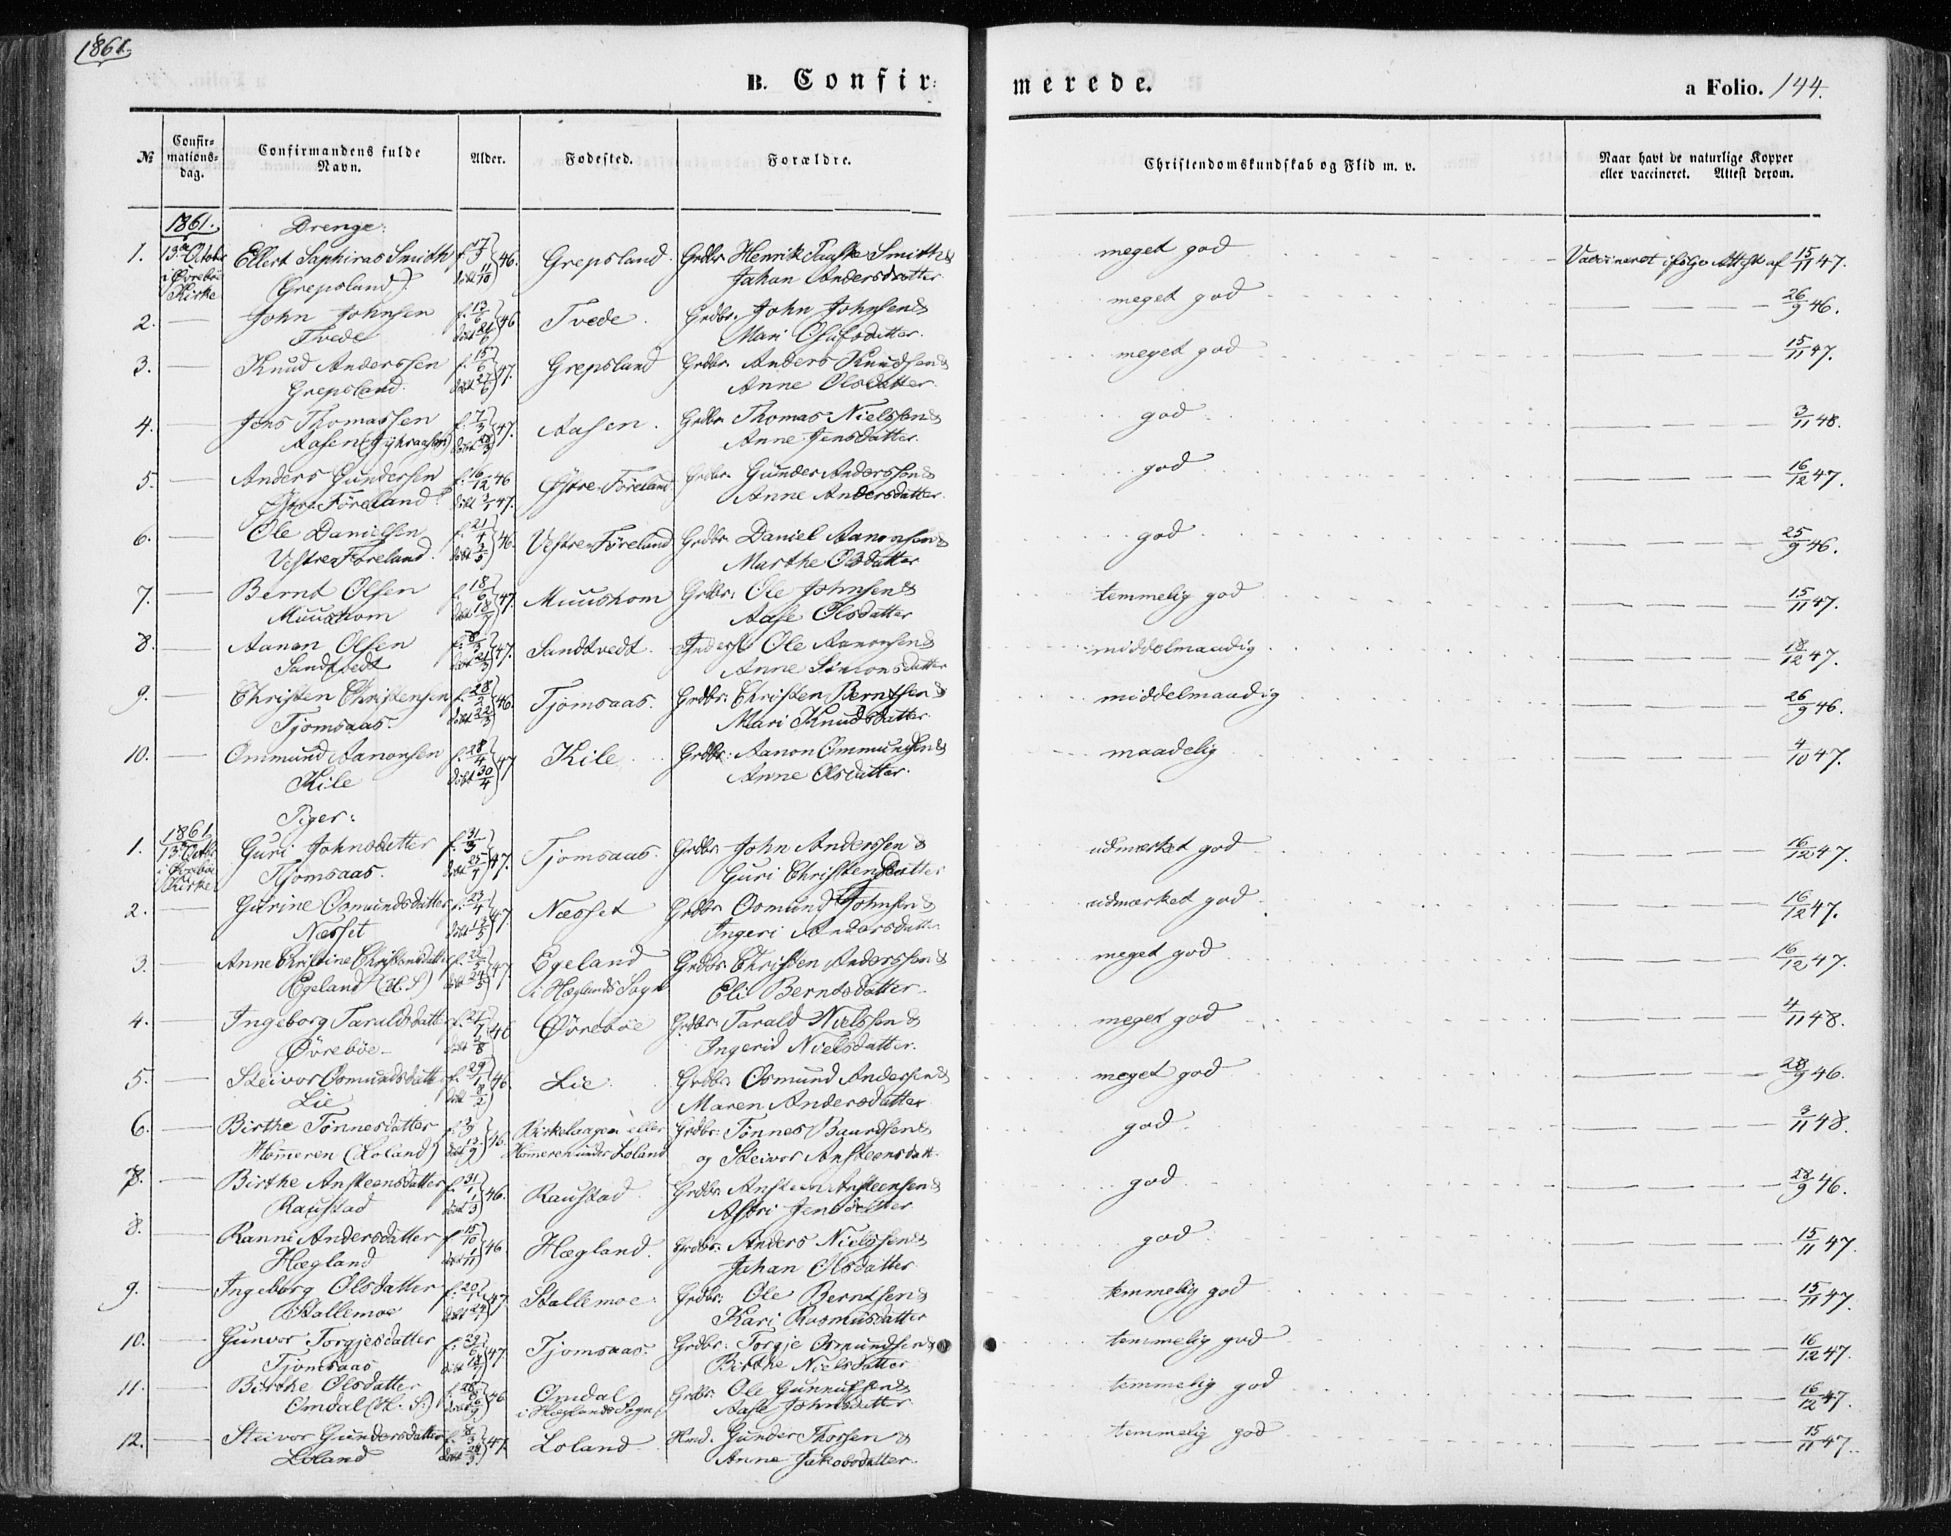 1861.
B. Confirmerede. a Folio. 144.
№ Confirmations-dag. Confirmandens fulde Navn. Alder. Fødested. Forældre. Christendomskundskab og Flid m. v. Naar havt de naturlige Kopper eller vaccineret. Attest derom.
1861. Drenge:
1. 13de October Ellert Saphiras Smidth 46. Grepsland. Grdbr. Henrik Smith & meget god Vaccineret ifølge Attest af 15/11 47.
i Øvrebøe Kirke (Grepsland) døbt 11/10 Jahan Andersdatter
2. — John Johnsen f. 13/6 46 Tvede. Grdbr. John Johnsen & meget god — — — 26/9 46.
Tvede døbt 21/6 Mari Olufsdatter.
3. — Knud Anderssen f. 15/6 47. Grepsland Grdbr. Anders Knudsen & meget god — — — 15/11 47.
Grepsland. døbt 27/6 Anne Olsdatter.
4. — Jens Thomassen f. 7/3 47. Aasen. Grdbr. Thomas Nielssen & god — — — 3/11 48.
Aasen døbt Anne Jensdatter.
5. — Anders Gundersen f. 16/12 46 Østre Föreland Grdbr. Gunder Anderssen & god — — — 16/12 47.
Østre Föreland døbt 3/1 47. Anne Andersdatter.
6. — Ole Danielsen f. 21/4 46. Vestre Föreland Grdbr. Daniel Aanonsen & god — — — 25/9 46.
Vestre Föreland. døbt 3/5 Marthe Olsdatter
7. — Bernt Olsen f. 18/6 47. Muushom Grdbr. Ole Johnsen & temmelig god — — — 15/11 47.
Muushom døbt 18/7 Aase Olsdatter
8. — Aanon Olsen 47. Sandtvedt. Inderst Ole Aanonsen & middelmaadig — — — 18/12 47.
Sandtvedt døbt 21/3 Anne Simonsdatter
9. — Christen Christensen f. 28/2 46. Tjomsaas. Grdbr. Christen Berntsen & middelmaadig — — — 26/9 46.
Tjomsaas. døbt 22/3 Mari Knudsdatter.
10. — Ommund Aanonsen f. 28/4 47 Kile. Grdbr. Aanon Ommundsen & maadelig — — — 4/10 47.
Kile døbt 30/4 Anne Olsdatter.
Piger:
1. 1861 13de Octbr. Guri Johnsdatter f. 31/3 47. Tjomsaas. Grdbr. John Anderssen & udmærket god — — — 16/12 47.
i Øvrebøe Kirke Tjomsaas. døbt 25/4 Guri Christensdatter
2. — Gurine Osmundsdatter f. 23/4 47 Næsset Grdbr. Osmund Johnsen & udmærket god — — — 16/12 47.
Næsset døbt 13/5 Ingeri Andersdatter
3. — Anne Christine Christensdatter f. 22/5 47 Egeland Grdbr. Christen Anderssen & meget god — — — 16/12 47.
Egeland (H. S) døbt 24/5 i Hæglands Sogn Eli Berntsdatter.
4. — Ingeborg Taraldsdatt. f. 21/7 46 Øvrebøe Grdbr. Tarald Nielssen & meget god — — — 4/11 48.
Øvrebøe. døbt 2/8 Ingerid Nielsdatter.
5. — Steivor Osmundsdatt. f. 29/1 46 Lie. Grdbr. Osmund Andersen & meget god — — — 28/9 46.
Lie døbt 8/2 Maren Andersdatter.
6. — Birthe Tönnesdatter 46. Kirkehaugen eller Grdbr. Tönnes Baardsen & god. — — — 3/11 48.
Homeren (Loland) døbt 13/9 Homeren under Loland og Steivor Ansteensdatt.
7. — Birthe Ansteensdatter f. 31/1 46. Raustad. Grdbr. Ansteen Ansteensen & god — — — 28/9 46.
Raustad døbt 1/3 Astri Jensdatter.
8. Ranni Andersdatter f. 15/10 46. Hægland. Grdbr. Anders Nielssen & god — — — 15/11 47.
Hægland døbt 1/11 Jahan Olsdatter
9. — Ingeborg Olsdatter f. 20/1 47. Stallemoe. Grdbr. Ole Berntsen & temmelig god — — — 15/11 47.
Stallemoe døbt 24/1 Kari Rasmusdatter
10. — Gunvor Torgjesdatter f. 29/6 47. Tjomsaas. Grdbr. Torgje Osmundsen & temmelig god — — — 16/12 47.
Tjomsaas døbt 18/7 Birthe Nielsdatter
11. — Birthe Olsdatter f. 28/8 46 Omdal Grdbr. Ole Gunnufsen & temmelig god — — — 16/12 47.
Omdal (H. S.) døbt i Hæglands Sogn Aase Johnsdatter
12. — Steivor Gundersdatter 47. Loland. Hmd. Gunder Thorsen & temmelig god — — — 15/11 47.
Loland døbt 28/3 Anne Jakobsdatter.